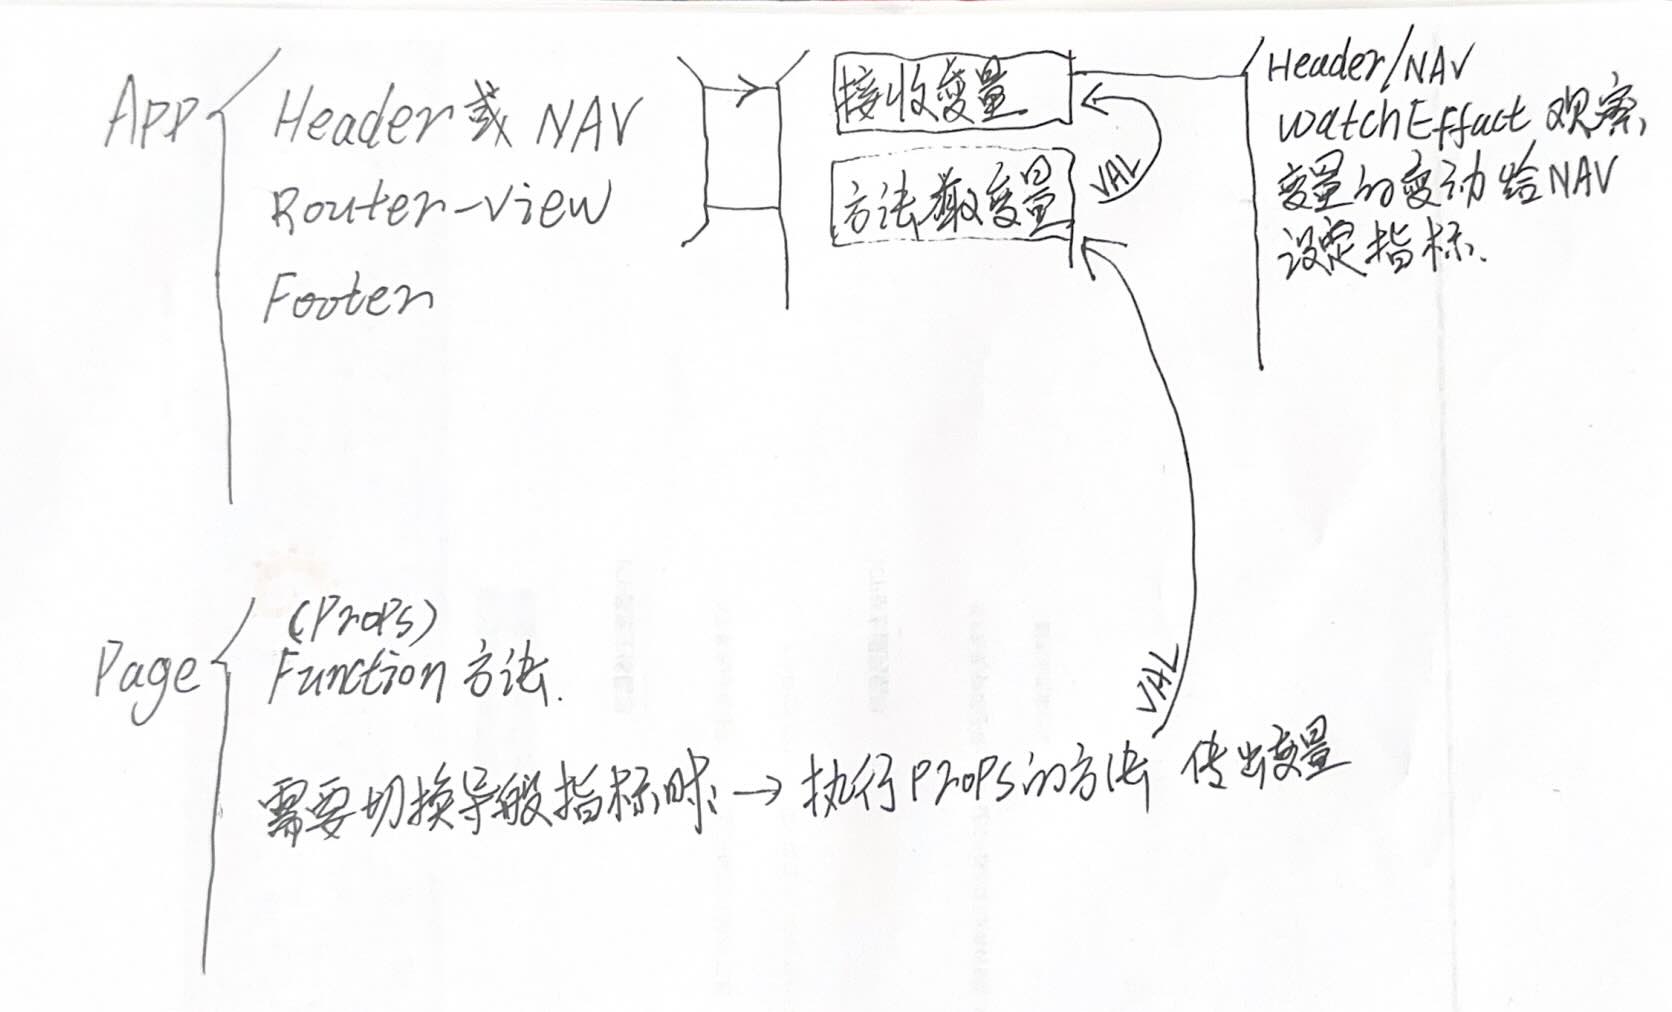 APP
Header或NAV
Router-view
Footer
接收变量
方法 变量
VAL
Header/NAV
watchEffact 观察
变量的变动给NAV
设定指标.
Page
(Props)
Function 方法.
需要切换导般指标时 → 执行props的方法 传出变量
VAL